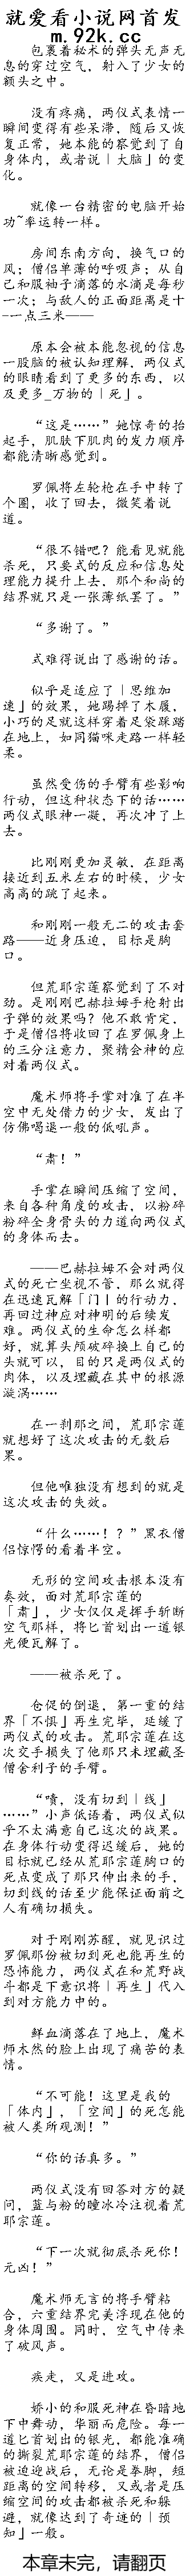 就爱看小说网首发
m.92k.cc
包裹着秘术的弹头无声无
息的穿过空气，射入了少女的
额头之中。
没有疼痛，两仪式表情一
瞬间变得有些呆滞，随后又恢
复正常，她本能的察觉到了自
身体内，或者说「大脑」的变
化。
就像一台精密的电脑开始
功~率运转一样。
房间东南方向，换气口的
风；僧侣单薄的呼吸声；从自
己和服袖子滴落的水滴是每秒
一次；与敌人的正面距离是十
-一点三米——
原本会被本能忽视的信息
一股脑的被认知理解，两仪式
的眼睛看到了更多的东西，以
及更多_万物的「死」。
“这是……”她惊奇的抬
起手，肌肤下肌肉的发力顺序
都能清晰感觉到。
罗佩将左轮枪在手中转了
个圈，收了回去，微笑着说
道。
“很不错吧？能看见就能
杀死，只要式的反应和信息处
理能力提升上去，那个和尚的
结界就只是一张薄纸罢了。”
“多谢了。”
式难得说出了感谢的话。
似乎是适应了「思维加
速」的效果，她踢掉了木屐，
小巧的足就这样穿着足袋踩踏
在地上，如同猫咪走路一样轻
柔。
虽然受伤的手臂有些影响
行动，但这种状态下的话……
两仪式眼神一凝，再次冲了上
去。
比刚刚更加灵敏，在距离
接近到五米左右的时候，少女
高高的跳了起来。
和刚刚一般无二的攻击套
路——近身压迫，目标是胸
口。
但荒耶宗莲察觉到了不对
劲。是刚刚巴赫拉姆手枪射出
子弹的效果吗？他不敢肯定，
于是僧侣将收回了在罗佩身上
的三分注意力，聚精会神的应
对着两仪式。
魔术师将手掌对准了在半
空中无处借力的少女，发出了
仿佛喝退一般的低吼声。
“肃！”
手掌在瞬间压缩了空间，
来自各种角度的攻击，以粉碎
粉碎全身骨头的力道向两仪式
的身体而去。
——巴赫拉姆不会对两仪
式的死亡坐视不管，那么就得
在迅速瓦解「门」的行动力，
再回过神应对神明的后续发
难。两仪式的生命怎么样都
好，就算头颅破碎换上自己的
头就可以，目的只是两仪式的
肉体，以及埋藏在其中的根源
漩涡……
在一刹那之间，荒耶宗莲
就想好了这次攻击的无数后
果。
但他唯独没有想到的就是
这次攻击的失效。
“什么……！？”黑衣僧
侣惊愕的看着半空。
无形的空间攻击根本没有
奏效，面对荒耶宗莲的
「肃」，少女仅仅是挥手斩断
空气那样，将匕首划出一道银
光便瓦解了。
——被杀死了。
仓促的倒退，第一重的结
界「不惧」再生完毕，延缓了
两仪式的攻击。荒耶宗莲在这
次交手损失了他那只未埋藏圣
僧舍利子的手臂。
“啧，没有切到「线」
……”小声低语着，两仪式似
乎不太满意自己这次的战果。
在身体行动变得迟缓后，她的
目标就已经从荒耶宗莲胸口的
死点变成了那只伸出来的手，
切到线的话至少能保证面前之
人有确切损失。
对于刚刚苏醒，就见识过
罗佩那份被切到死也能再生的
恐怖能力，两仪式在和荒野战
斗都是下意识将「再生」代入
到对方能力中的。
鲜血滴落在了地上，魔术
师木然的脸上出现了痛苦的表
情。
“不可能！这里是我的
「体内」，「空间」的死怎能
被人类所观测！”
“你的话真多。”
两仪式没有回答对方的疑
问，蓝与粉的瞳冰冷注视着荒
耶宗莲。
“下一次就彻底杀死你！
元凶！”
魔术师无言的将手臂粘
合，六重结界完美浮现在他的
身体周围。同时，空气中传来
了破风声。
疾走，又是进攻。
娇小的和服死神在昏暗地
下中舞动，华丽而危险。每一
道匕首划出的银光，都能准确
的撕裂荒耶宗莲的结界，僧侣
被迫迎战后，无论是拳脚，短
距离的空间转移，又或者是压
缩空间的攻击都被杀死和躲
避，就像达到了奇迹的「预
知」一般。
本章未完，请翻页